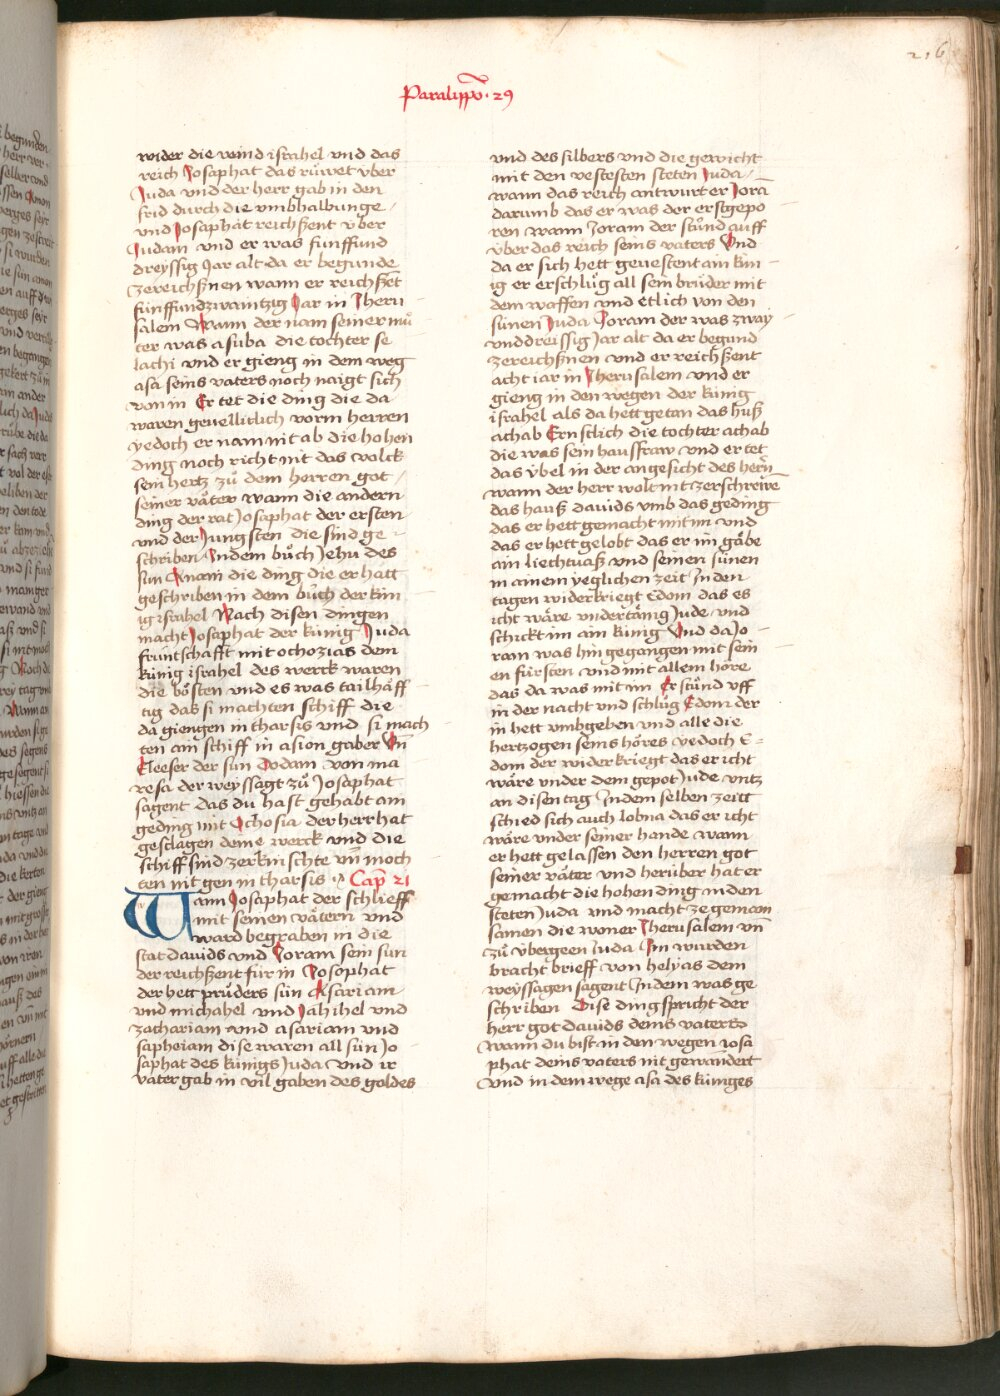 216
Paralippo͞ · 29
wider die veind israhel vnd das
reich Josaphat das růwet vber
Juda vnd der herr gab in den
frid durch die vmbhalbunge
vnd Josaphat reichßent v̈ber
Judam vnd er was funffund
dreyssig Jar alt da er begunde
zereichßnen wann er reichße͞t
fünffundzwaintzig Jar in Jheru
salem Wann der nam seiner mů
ter was asuba die tochter se
lachi vnd er gieng in dem weg
asa seins vaters noch naigt sich
von in Er tet die ding die da
waren geuellitlich vorm herren
yedoch er nam nit ab die hohen
ding noch richt nit das volck
sein hertz zů dem herren got
seiner väter wann die andern
ding der rat Josaphat der ersten
vnd der Jungsten die sind ge
schriben Indem bůch Jehu des
sun Anani die ding die er hatt
geschriben in dem bůch der kün
ig israhel Nach disen dingen
macht Josaphat der künig Juda
fruntschafft mit ochozias dem
künig israhel des werck waren
die bösten vnd es was tailhäff
tig das si machten schiff die
da giengen in tharsis vnd si mach
ten ain schiff in asion gaber Vn͞
Eleeser der sun Dodam von ma
resa der weyssagt zů Josaphat
sagent das du hast gehabt ain
geding mit Ochosia der herr hat
geschlagen deine werck vnd die
schiff sind zerknischte vn͞ moch
ten nit gen in tharsis · Cap͞ 21
Wann Josaphat der schlieff
mit seinen vätern vnd
ward begraben in die
stat dauids vnd Joram sein sun
der reichßent für in Josophat
der hett prüders sün Asariam
vnd michahel vnd Jahihel vnd
zachariam vnd asariam vnd
sapheiam dise waren all sün Jo
saphat des künigs Juda vnd ir
vater gab in vil gaben des goldes
vnd des silbers vnd die gewicht
mit den vestesten steten Juda
wann das reich antwurt er Jora
darumb das er was der erstgepo
ren wann Joram der stůnd auff
v̈ber das reich seins vaters Vnd
da er sich hett geuestent ain kün
ig er erschlůg all sein brüder mit
dem waffen vnd etlich von den
sünen Juda Joram der was zway
vnddreissig Jar alt da er begund
zereichßnen vnd er reichßent
acht iar in Jherusalem vnd er
gieng in den wegen der künig
israhel als da hett getan das huß
achab Ernstlich die tochter achab
die was sein haussfraw vnd er tet
das v̈bel in der angesicht des hern͞
wann der herr wolt nit zerschreiwe͞
das hauß dauids vmb das geding
das er hett gemacht mit im vnd
das er hett gelobt das er im gäbe
ain liechtuaß vnd seinen sünen
in ainem yeglichen zeit In den
tagen widerkriegt Edom das es
icht wäre vndertänig Jude vnd
schickt im ain künig Vnd da Jo
ram was hin gegangen mit sein
en fürsten vnd mit allem höre
das da was mit im Er stůnd vff
in der nacht vnd schlůg Edom der
in hett vmbgeben vnd alle die
hertzogen seins höres yedoch E
dom der widerkriegt das er icht
wäre vnder dem gepot Jude vntz
an disen tag Indem selben zeitt
schied sich auch lobna das er icht
wäre vnder seiner hande wann
er hett gelassen den herren got
seiner väter vnd herüber hat er
gemacht die hohen ding in den
steten Juda vnd macht ze gemain
samen die woner Jherusalem vn͞
zů v̈bergeen Juda Im wurden
bracht brieff von helyas dem
weyssagen sagent Indem was ge
schriben Dise ding spricht der
herr got dauids deins vaters
wann du bist in den wegen Josa
phat deins vaters nit gewandert
vnd in dem wege asa des küniges